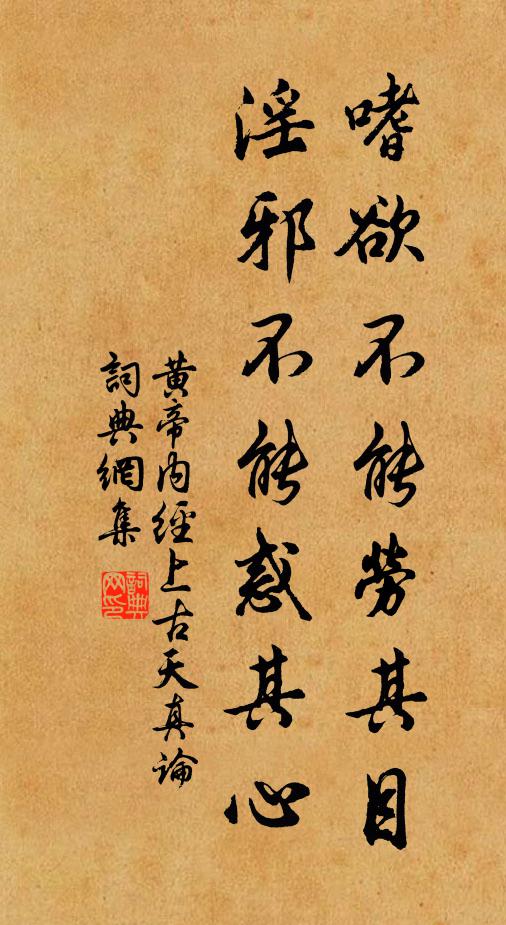 嗜欲不能勞其目
淫邪不能惑其心
黄帝内經上古天真論
詞典網集
詞典网印